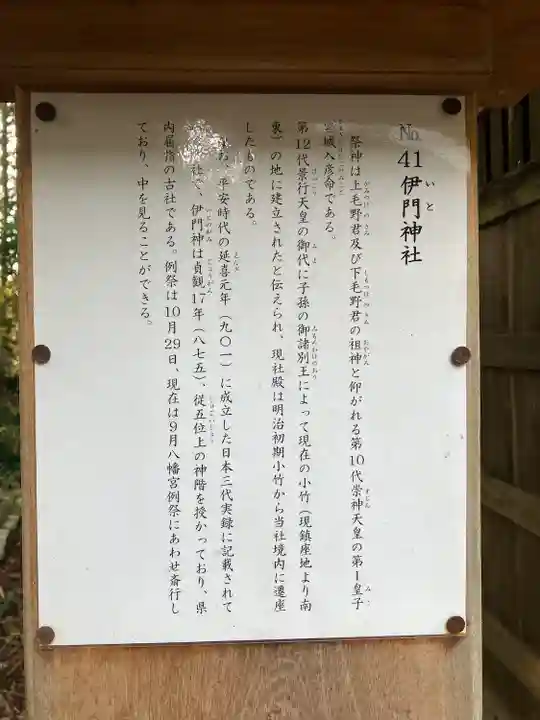 No. 41 伊門神社
祭神は上毛野君及び下毛野君の祖神と仰がれる第10代崇神天皇の第1皇子
城入彦命である。
第12代景行天皇の御代に子孫の御諸別王によって現在の小竹(現鎮座地より南
東)の地に建立されたと伝えられ、現社殿は明治初期小竹から当社境内に遷座
したものである。
平安時代の延喜元年(九〇一)に成立した日本三代実録に記載されて
社で、伊門神は貞観17年(八七五)、従五位上の神階を授かっており、県
内屈指の古社である。例祭は10月29日、現在は9月八幡宮例祭にあわせ斎行し
ており、中を見ることができる。